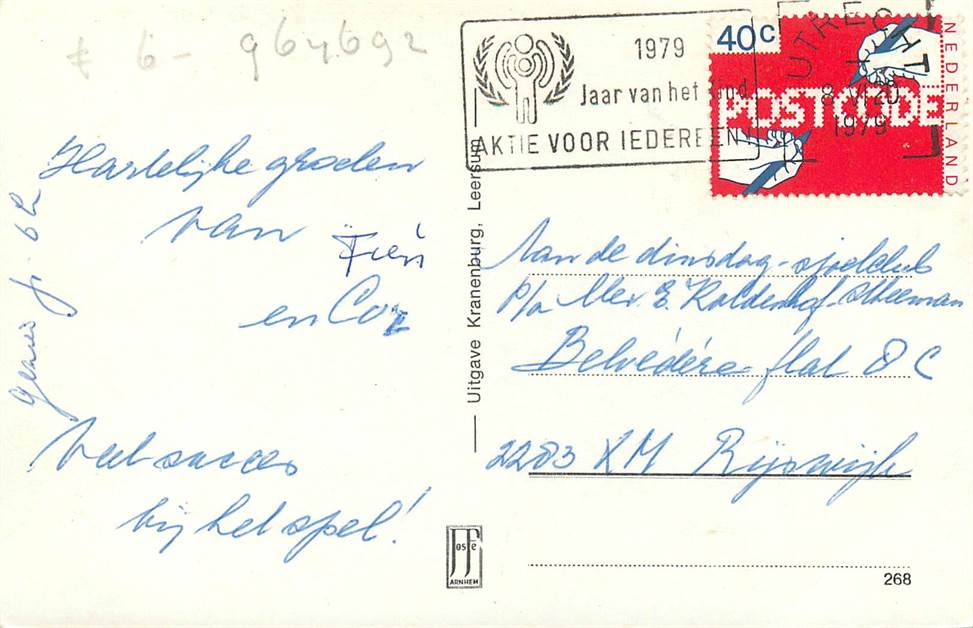 f 6 - 964692
Hartelijke groeten
van Fien
en Cor
Veel succes
bij het spel!
Uitgave Kranenburg, Leersum
1979
Jaar van het kind
AKTIE VOOR IEDEREEN
40c
POSTCODE
NEDERLAND
UTRECHT
8 VI 20
1979
Aan de dinsdag-sjoelclub
p/a Mev. E.
Belvédère flat 8 C
2283 XM Rijswijk
Josfe
ARNHEM
268